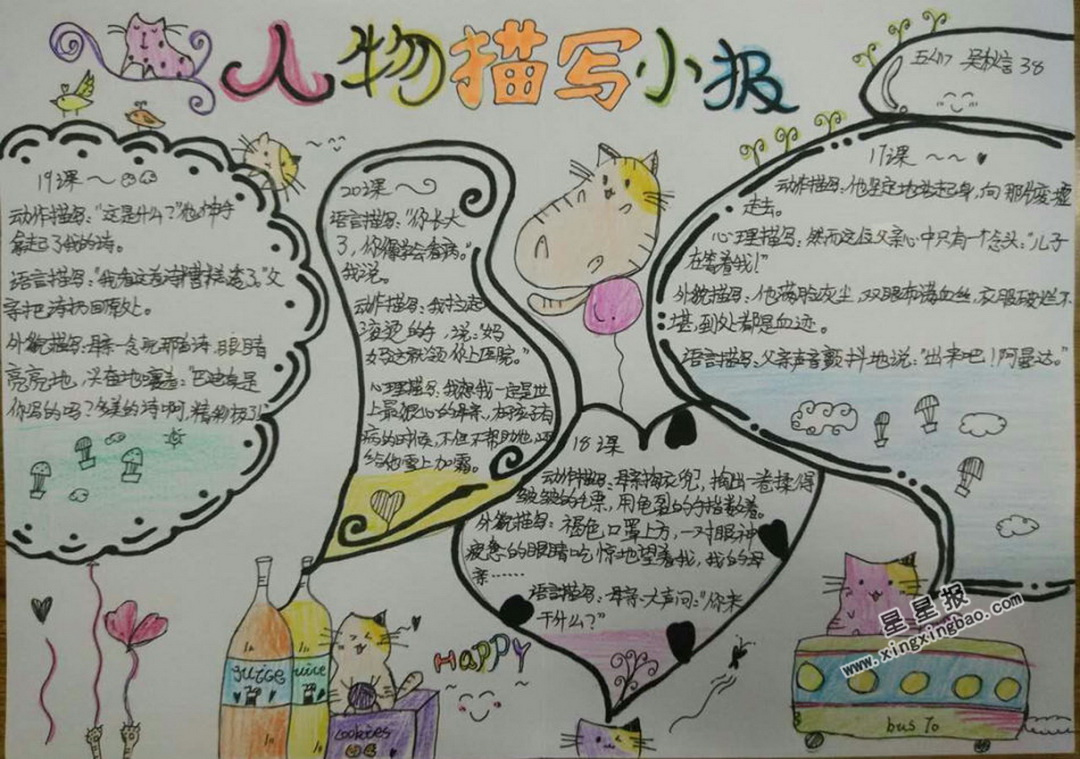 人物描写小报
五(7) 吴 38
19课~
动作描写:“这是什么?”他伸手
拿起了我的诗。
语言描写:“我看这首诗糟糕透了。”父
亲把诗扔回原处。
外貌描写:母亲一念完那首诗,眼睛
亮亮地,兴奋地嚷着:“巴迪,是
你写的吗?多美的诗啊,精彩极了!
20课~
语言描写:“你长大
了,你得学会看病。”
我说。
动作描写:我拉起
滚烫的手,说:“妈
妈这就领你上医院。”
心理描写:我想我一定是世
上最狠心的母亲,在孩子有
病的时候,不但不帮助他,还
给他雪上加霜。
17课~~
动作描写:他坚定地站起身,向那片废墟
走去。
心理描写:然而这位父亲心中只有一个念头:“儿子
在等着我!”
外貌描写:他满脸灰尘,双眼布满血丝,衣服破烂不
堪,到处都是血迹。
语言描写:父亲声音颤抖地说:“出来吧!阿曼达。”
18课
动作描写:母亲掏衣兜,掏出一卷揉得
皱皱的毛票,用龟裂的手指数着。
外貌描写:褐色,口罩上方,一对眼神
疲惫的眼睛吃惊地望着我,我的母
亲……
语言描写:母亲大声问:“你来
干什么?”
juice
juice
cookies
HAPPY
bus To
星星报
www.xingxingbao.com